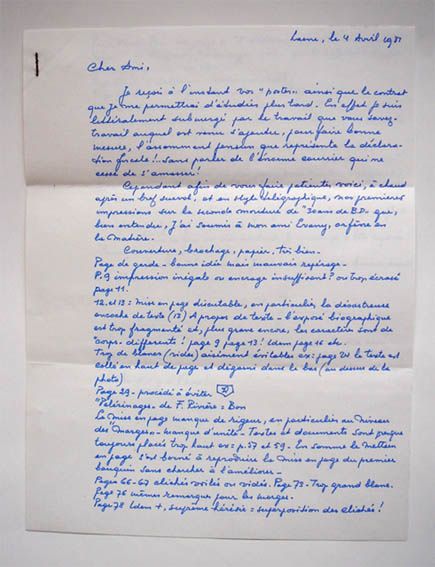 le 4 Avril 19
Cher Ami,
Je reçois à l'instant vos "postes" ainsi que le contrat
que je me permettrai d'étudier plus tard. En effet je suis
littéralement submergé par le travail que vous savez -
travail auquel est venu s'ajouter, pour faire bonne
mesure, l'assommant pensum que représente la déclara-
tion fiscale!! sans parler de l'énorme courrier qui ne
cesse de s'amasser!
Cependant afin de vous faire patienter voici, à chaud
après un bref survol, et en style télégraphique, nos premières
impressions sur la seconde mouture de "30 ans de B.D. que,
bien entendu, j'ai soumis à mon ami Evany, orfèvre en
la matière.
Couverture, brochage, papier, très bien.
Page de garde - bonne idée mais mauvais repérage -
P.9 impression inégale ou encrage insuffisant? ou trop écrasé
page 11.
12 et 13: Mise en page discutable, en particulier, la désastreuse
encoche de texte (12) A propos de texte - l'exposé biographique
est trop fragmenté et, plus grave encore, les caractères sont de
corps différents! page 9 page 13! Idem page 16 etc.
Trop de blancs (vides) aisément évitables ex: page 24 le texte est
collé en haut de page et dégarni dans le bas (au dessus de la
photo)
Page 29 - procédé à éviter
"Pélerinages - de F. Rivière: Bon
La mise en page manque de rigueur, en particulier au niveau
des marges - manque d'unité - Textes et documents sont presque
toujours placés trop haut ex: p.57 et 59. En somme le metteur
en page s'est borné à reproduire la mise en page du premier
bouquin sans chercher à l'améliorer -
Pages 66-67 clichés voilés ou vidés. Page 73 - Trop grand blanc.
Page 76 même remarque pour les marges.
Page 78 Idem +, suprême hérésie: superposition des clichés!